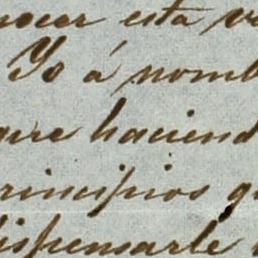 nocer esta v
Yo á nomb
que haciend
rincipios q
dispensarle